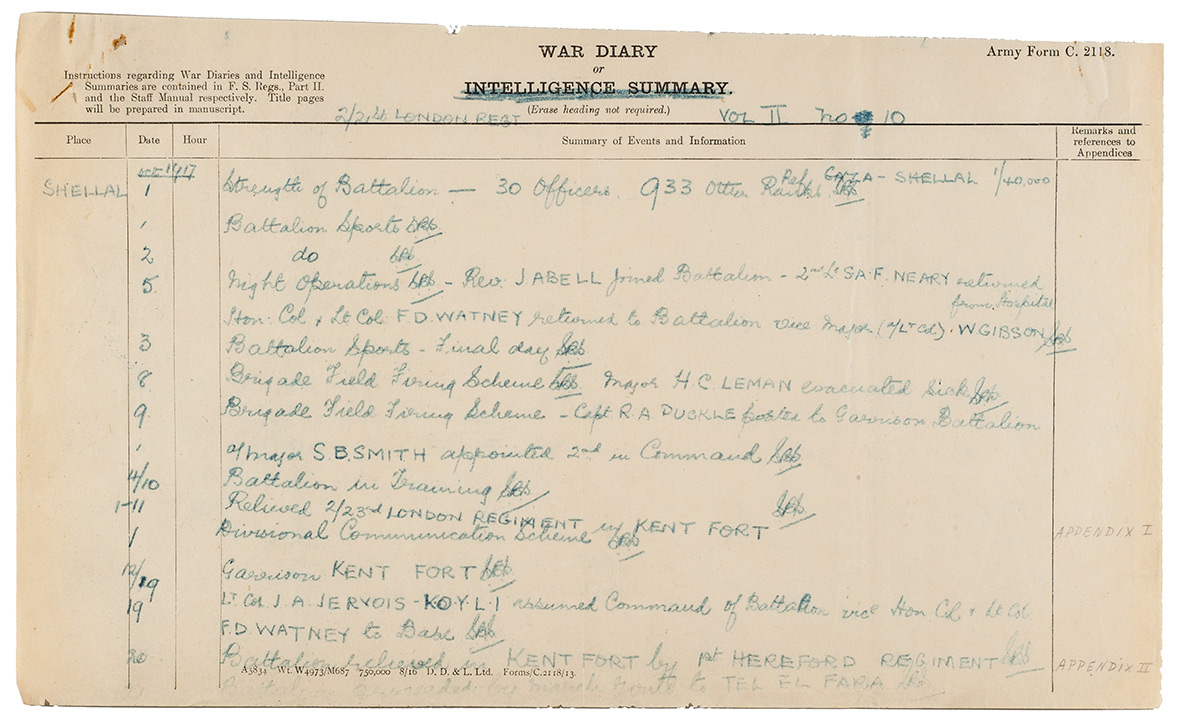 WAR DIARY
or
INTELLIGENCE SUMMARY.
(Erase heading not required.)
Army Form C. 2118.
Instructions regarding War Diaries and Intelligence
Summaries are contained in F. S. Regs., Part II.
and the Staff Manual respectively. Title pages
will be prepared in manuscript.
2/21st LONDON REGT VOL II No 10
Place Date Hour Summary of Events and Information Remarks and references to Appendices
Oct 1917
SHELLAL 1 Strength of Battalion — 30 Officers. 933 Other Ranks Ref GAZA - SHELLAL 1/40,000
Battalion Sports
2 do
5. Night Operations - Rev. J ABELL joined Battalion - 2nd Lt SA.F. NEARY returned
from Hospital
Hon: Col & Lt Col F.D. WATNEY returned to Battalion vice Major (a/Lt Col). W. GIBSON
3 Battalion Sports - Final day
8 Brigade Field Firing Scheme Major H.C. LEMAN evacuated Sick
9. Brigade Field Firing Scheme - Capt. R.A PUCKLE posted to Garrison Battalion
a/Major S.B. SMITH appointed 2nd in Command
Battalion in Training
Relieved 2/23rd LONDON REGIMENT in KENT FORT
Divisional Communication Scheme APPENDIX I
12/19 Garrison KENT FORT
19 Lt Col. J.A. JERVOIS - K.O.Y.L.I assumed Command of Battalion vice Hon Col & Lt Col
F.D. WATNEY to Base
20 Battalion relieved in KENT FORT by 1st HEREFORD REGIMENT APPENDIX II
A5834 Wt. W4973/M687 750,000 8/16 D. D. & L. Ltd. Forms/C.2118/13.
Battalion proceeded by march route to TEL EL FARA